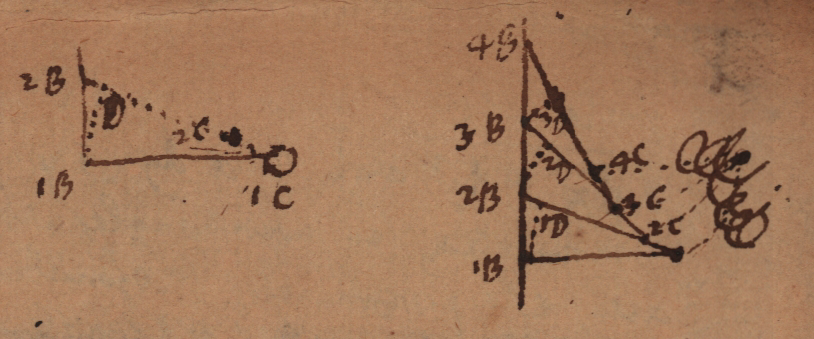 2B
D
2C
1B
1C
4B
3D
3B
2D
4C
2B
3C
1D
2C
1B